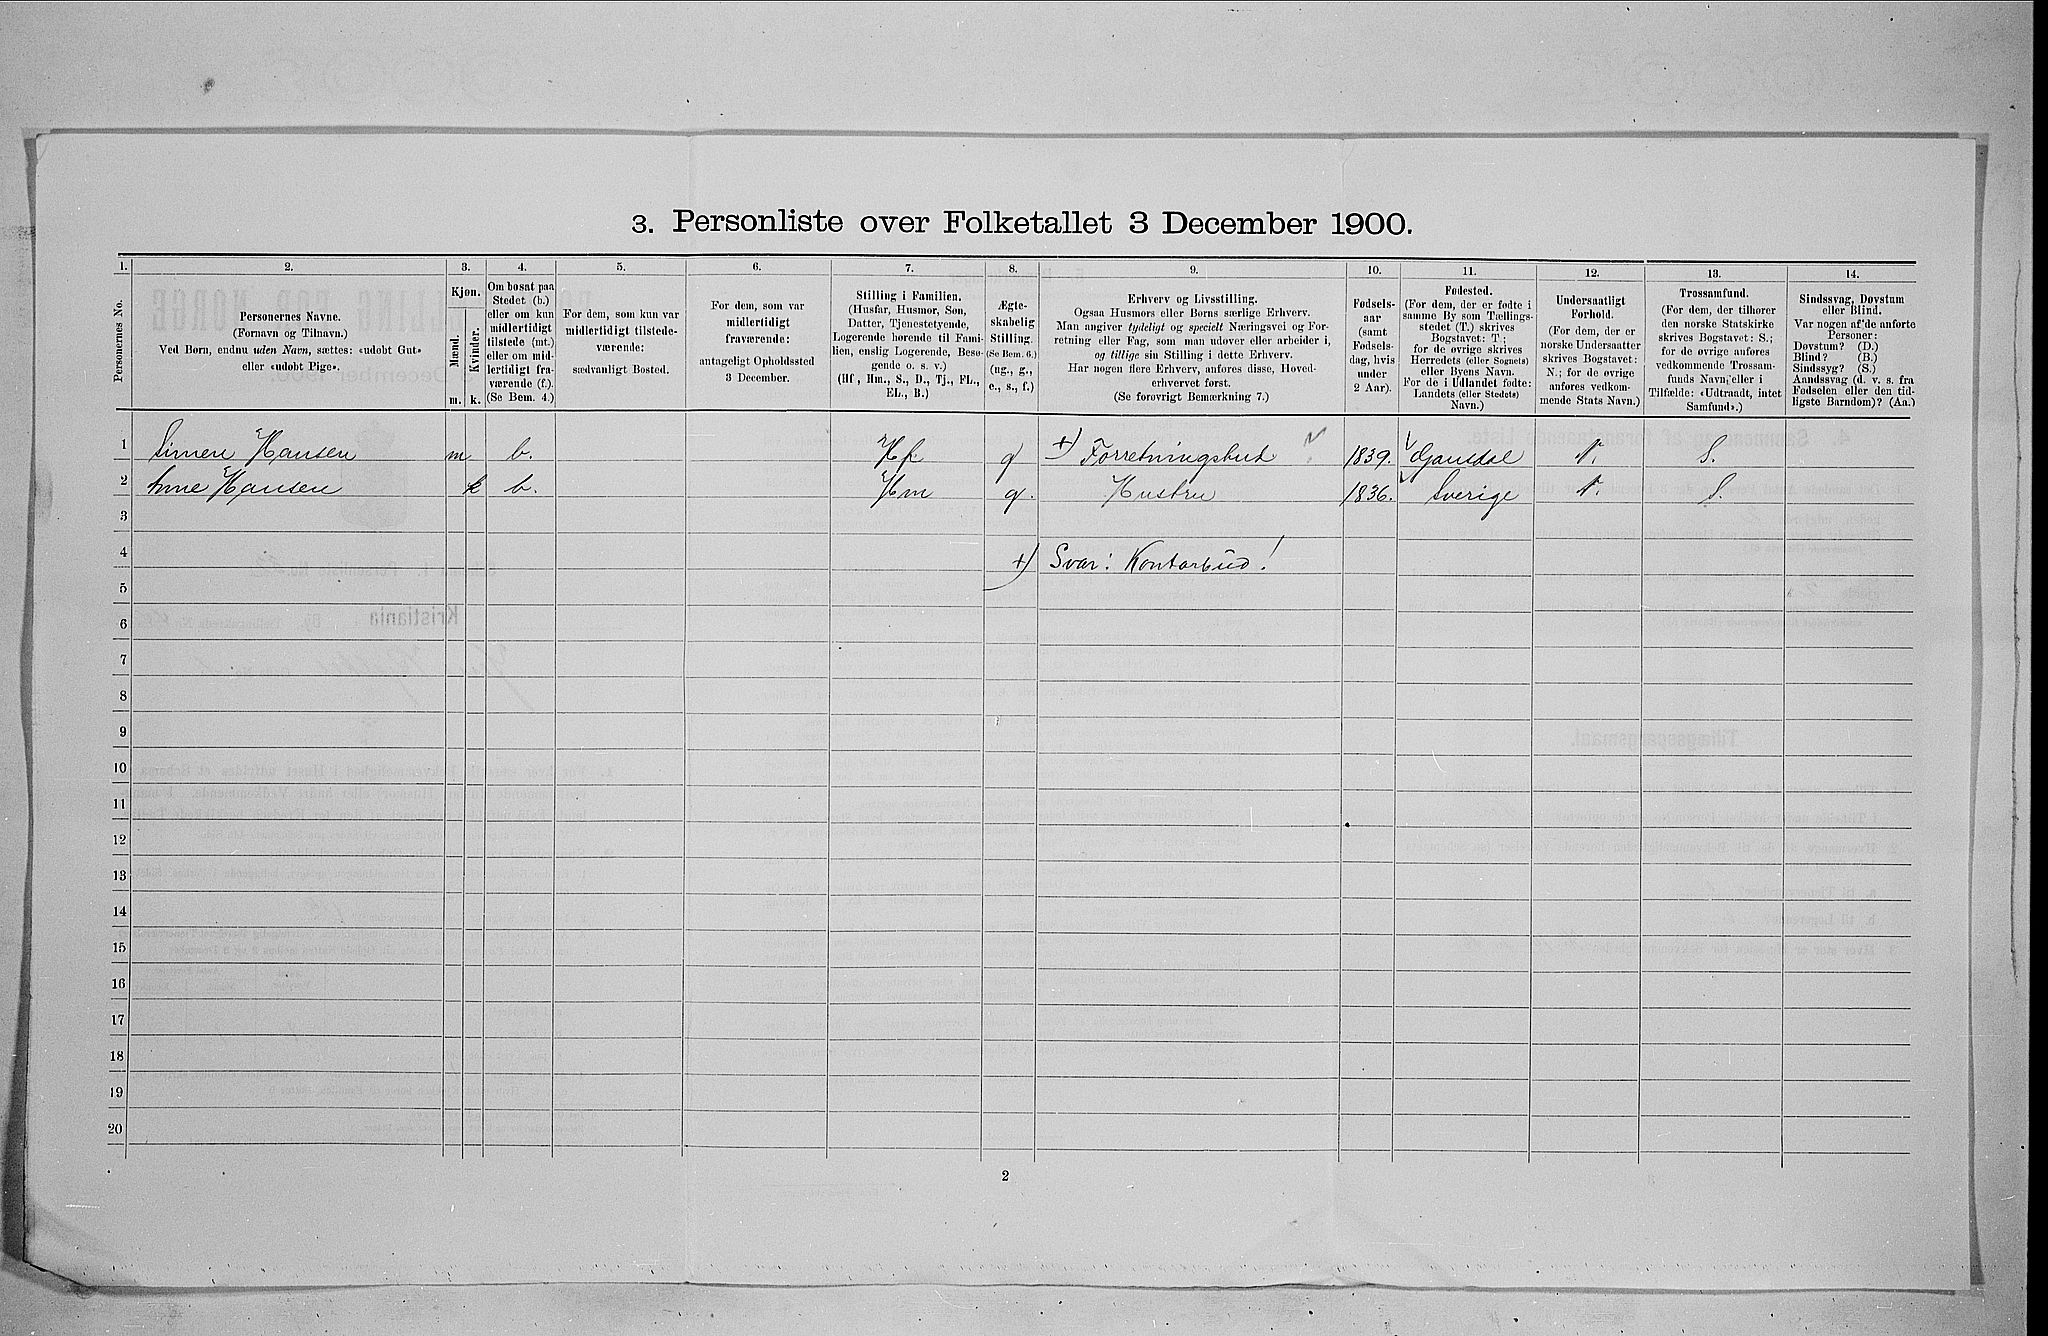 3. Personliste over Folketallet 3 December 1900.
1. 2. 3. 4. 5. 6. 7. 8. 9. 10. 11. 12. 13. 14.
Personernes No.
Personernes Navne.
(Fornavn og Tilnavn.)
Ved Børn, endnu uden Navn, sættes: «udøbt Gut»
eller «udøbt Pige».
Kjøn.
Mænd.
Kvinder.
m. k.
Om bosat paa
Stedet (b.)
eller om kun
midlertidigt
tilstede (mt.)
eller om mid-
lertidigt fra-
værende (f.).
(Se Bem. 4.)
For dem, som kun var
midlertidigt tilstede-
værende:
sædvanligt Bosted.
For dem, som var
midlertidigt
fraværende:
antageligt Opholdssted
3 December.
Stilling i Familien.
(Husfar, Husmor, Søn,
Datter, Tjenestetyende,
Logerende hørende til Fami-
lien, enslig Logerende, Besø-
gende o. s. v.)
(Hf., Hm., S., D., Tj., FL.,
EL., B.)
Ægte-
skabelig
Stilling.
(Se Bem. 6.)
(ug., g.,
e., s., f.)
Erhverv og Livsstilling.
Ogsaa Husmors eller Børns særlige Erhverv.
Man angiver tydeligt og specielt Næringsvei og For-
retning eller Fag, som man udøver eller arbeider i,
og tillige sin Stilling i dette Erhverv.
Har nogen flere Erhverv, anføres disse, Hoved-
erhvervet først.
(Se forøvrigt Bemærkning 7.)
Fødsels-
aar
(samt
Fødsels-
dag, hvis
under
2 Aar).
Fødested.
(For dem, der er fødte i
samme By som Tællings-
stedet (T.) skrives
Bogstavet: T.;
for de øvrige skrives
Herredets (eller Sognets)
eller Byens Navn.
For de i Udlandet fødte:
Landets (eller Stedets)
Navn.)
Undersaatligt
Forhold.
(For dem, der er
norske Undersaatter
skrives Bogstavet:
N.; for de øvrige
anføres vedkom-
mende Stats Navn.)
Trossamfund.
(For dem, der tilhører
den norske Statskirke
skrives Bogstavet: S.;
for de øvrige anføres
vedkommende Trossam-
funds Navn, eller i
Tilfælde: «Udtraadt, intet
Samfund».)
Sindssvag, Døvstum
eller Blind.
Var nogen af de anførte
Personer:
Døvstum? (D.)
Blind? (B.)
Sindssyg? (S.)
Aandssvag (d. v. s. fra
Fødselen eller den tid-
ligste Barndom)? (Aa.)
1 Simen Hansen m b. Hf. g +) Forretningsbud ? 1839. Gausdal N. S.
2 Anne Hansen k b. Hm g. Hustru 1836. Sverige N. S.
3
4 +) Svar: Kontorbud!
5
6
7
8
9
10
11
12
13
14
15
16
17
18
19
20
2